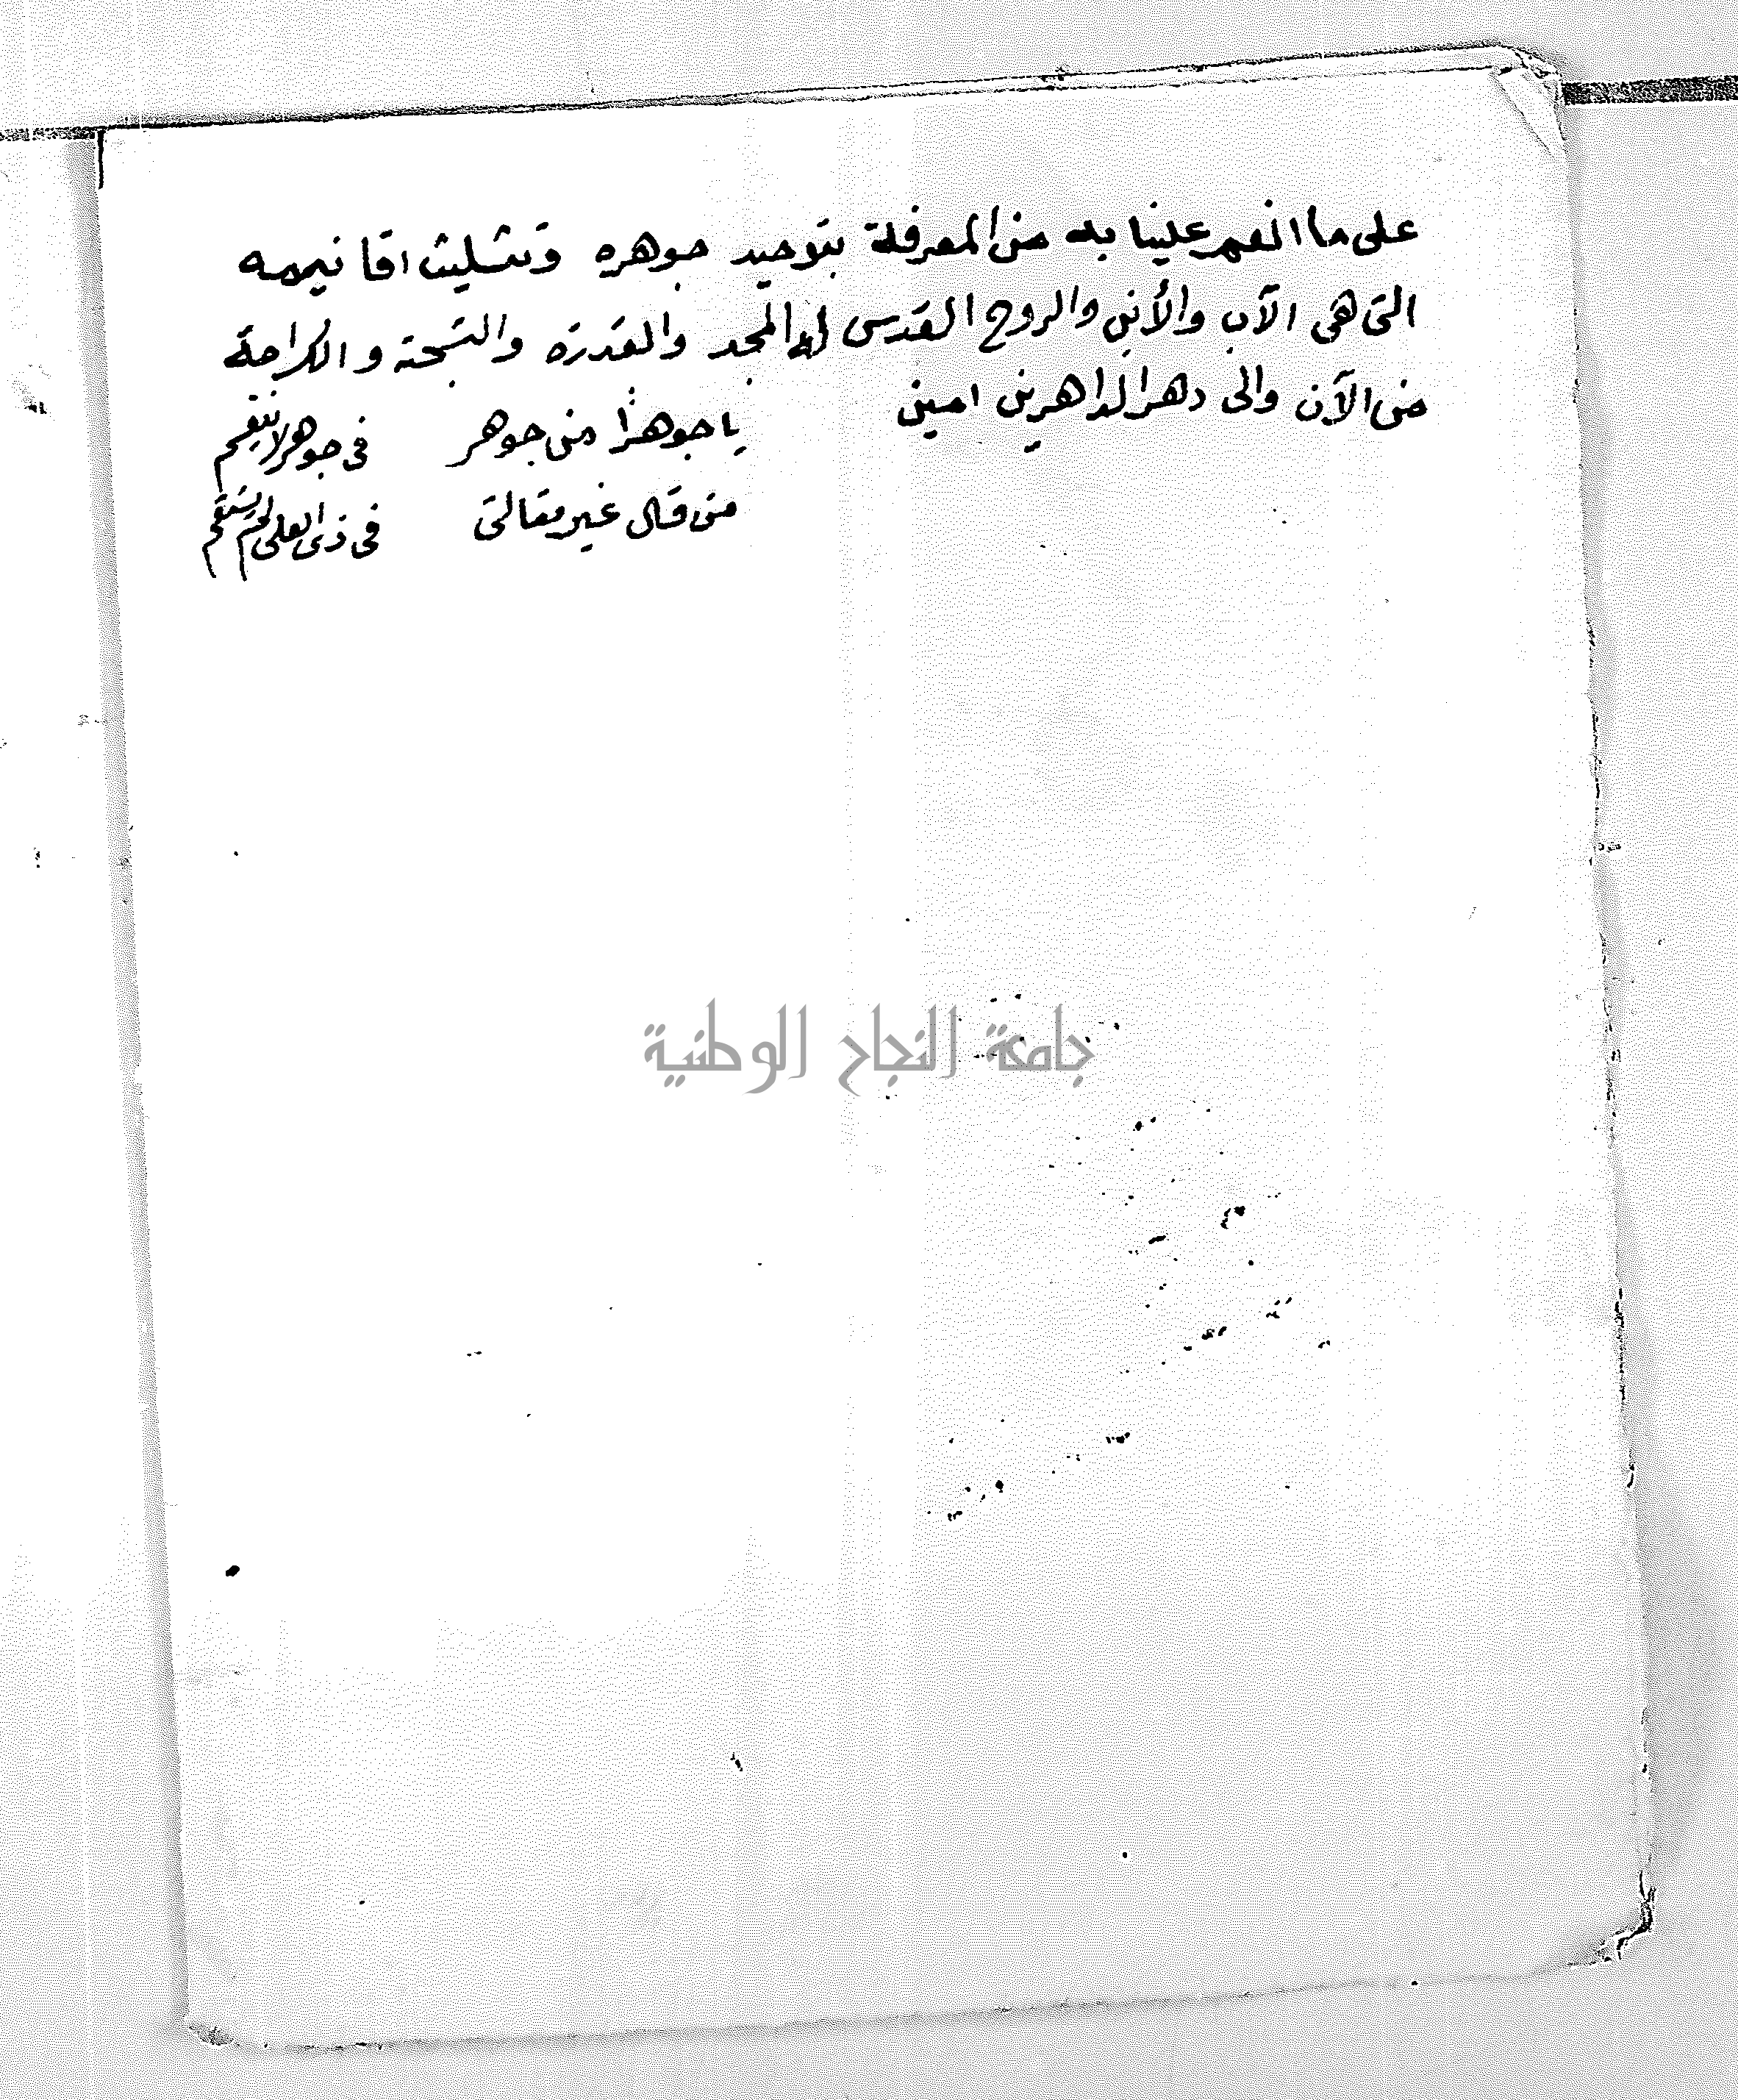 على ما انعم علينا به من المعرفة بتوحيد جوهره وتثليث اقانيمه
التى هى الآب والأبن والروح القدس له المجد والقدرة والتسبحة والكرامة
من الآن والى دهر الداهرين امين
يا جوهرًا من جوهر في جوهر لا ينقسم
من قال غير مقالتى في ذى العلى لم يستقم
جامعة النجاح الوطنية